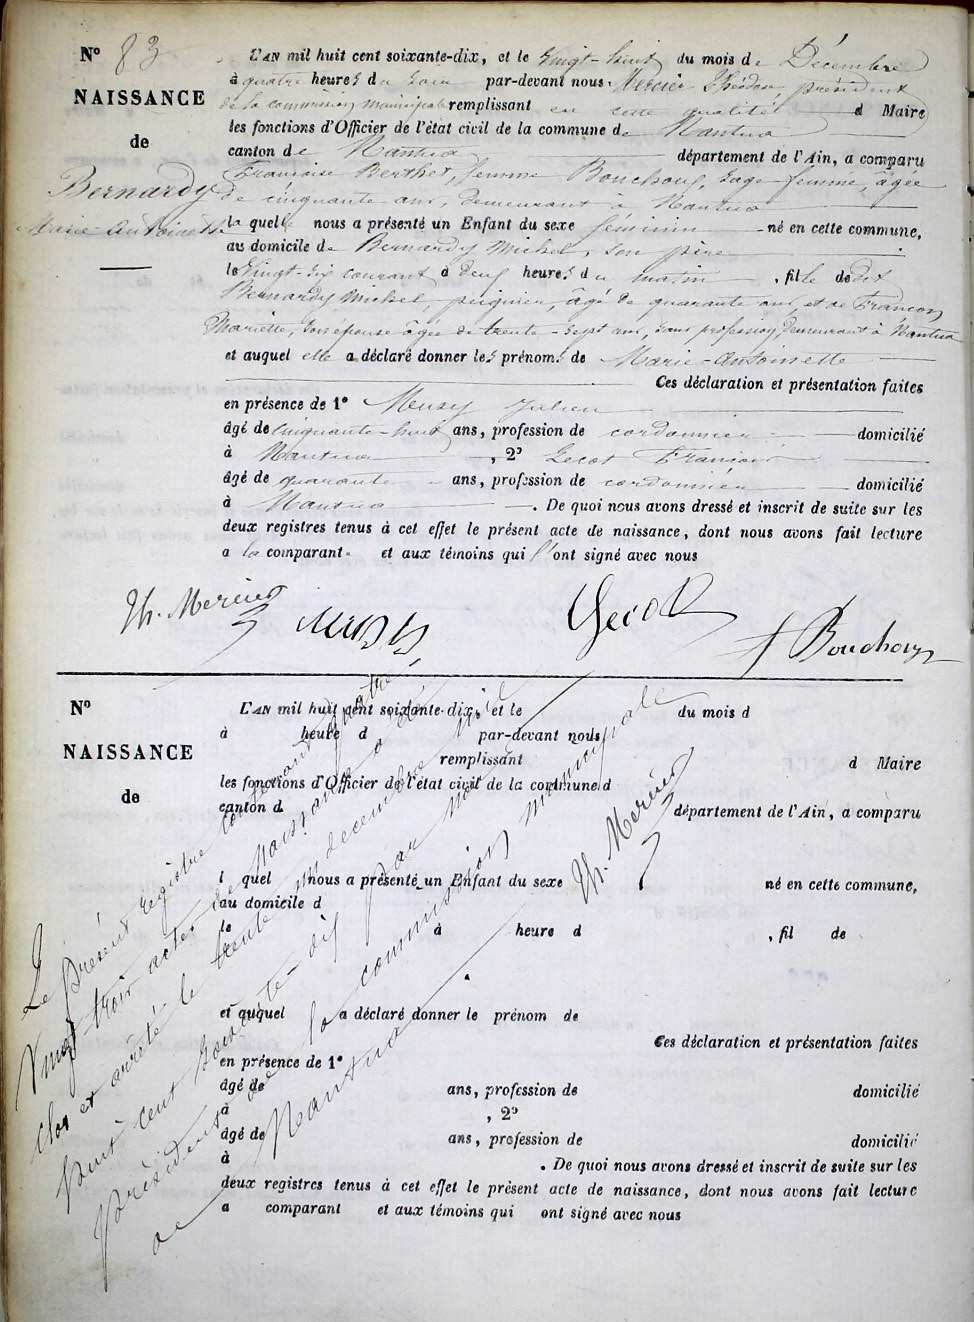 N° 83
NAISSANCE
de
Bernardy
Marie-Antoinette
L'AN mil huit cent soixante-dix, et le vingt-huit du mois de Décembre
à quatre heures du soir par-devant nous Mercier Théodore, président
de la commission municipale remplissant en cette qualité d Maire
les fonctions d'Officier de l'état civil de la commune de Nantua
canton de Nantua département de l'Ain, a comparu
Françoise Berthet, femme Bouchoux, sage-femme, âgée
de cinquante ans, demeurant à Nantua
la quelle nous a présenté un Enfant du sexe féminin né en cette commune,
au domicile de Bernardy Michel, son père
le vingt-six courant à deux heures du matin, fille de dit
Bernardy Michel, peignier, âgé de quarante ans, et de Françon
Mariette, son épouse âgée de trente-sept ans, sans profession, demeurant à Nantua
et auquel elle a déclaré donner les prénoms de Marie-Antoinette
Ces déclaration et présentation faites
en présence de 1° Meusy Julien
âgé de cinquante-huit ans, profession de cordonnier domicilié
à Nantua, 2° Gecot François
âgé de quarante ans, profession de cordonnier domicilié
à Nantua. De quoi nous avons dressé et inscrit de suite sur les
deux registres tenus à cet effet le présent acte de naissance, dont nous avons fait lecture
a la comparante et aux témoins qui l'ont signé avec nous
Th. Mercier
Gecot
f Bouchoux
N°
NAISSANCE
de
L'AN mil huit cent soixante-dix, et le du mois d
à heure d par-devant nous
remplissant d Maire
les fonctions d'Officier de l'état civil de la commune d
canton d département de l'Ain, a comparu
l quel nous a présenté un Enfant du sexe né en cette commune,
au domicile d
le à heure d , fil de
et auquel a déclaré donner le prénom de
Ces déclaration et présentation faites
en présence de 1°
âgé de ans, profession de domicilié
à , 2°
âgé de ans, profession de domicilié
à . De quoi nous avons dressé et inscrit de suite sur les
deux registres tenus à cet effet le présent acte de naissance, dont nous avons fait lecture
a comparant et aux témoins qui ont signé avec nous
Le présent registre contenant quatre
vingt-trois actes de Naissance a été
clos et arrêté le trente un décembre mil
huit cent soixante-dix par nous
président de la commission municipale
de Nantua
Th. Mercier